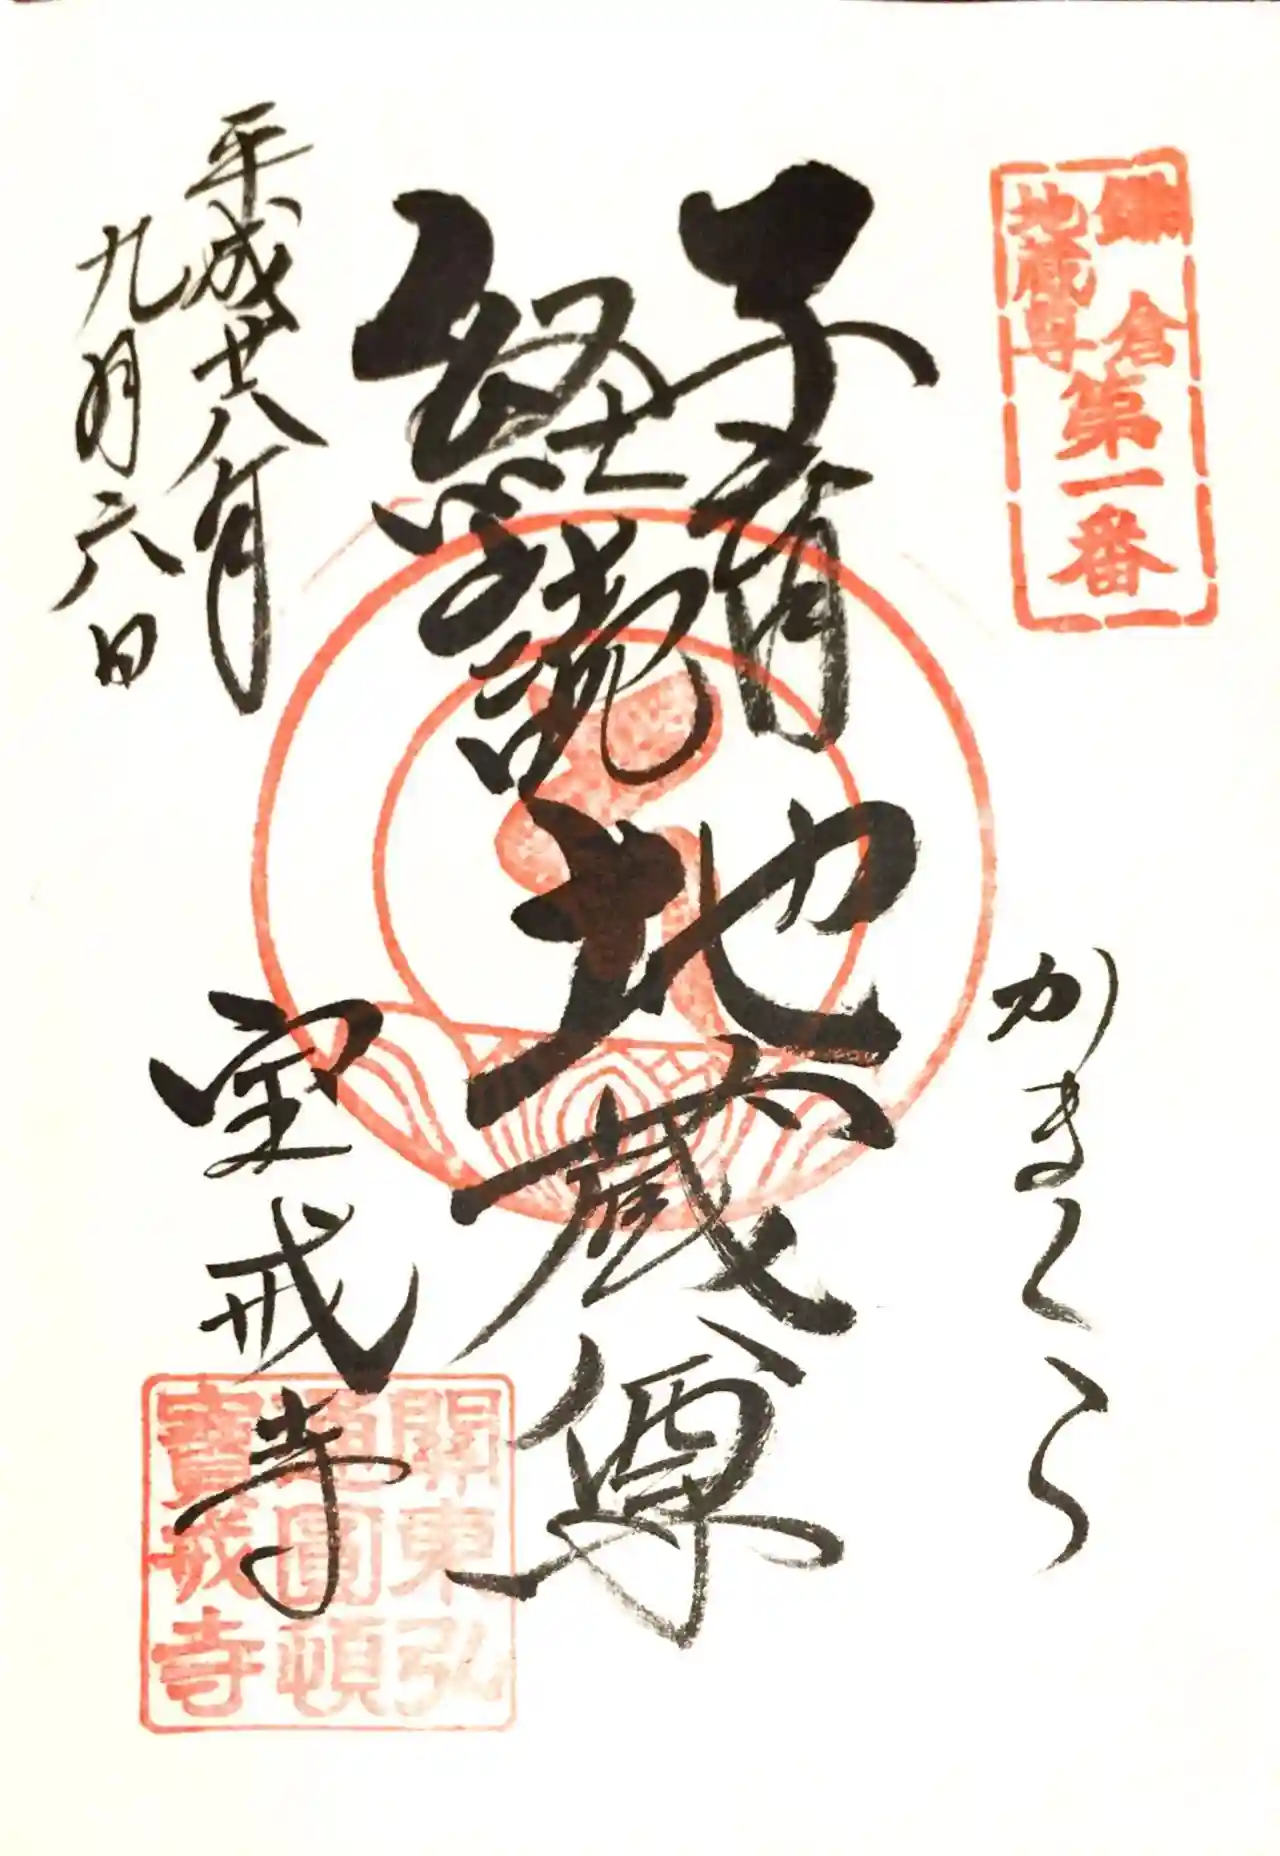 鎌倉
地蔵尊
第一番
かまくら
子育
経読
地蔵尊
平成廿八年
九月六日
宝戒寺
關東弘
通圓頓
寳戒寺